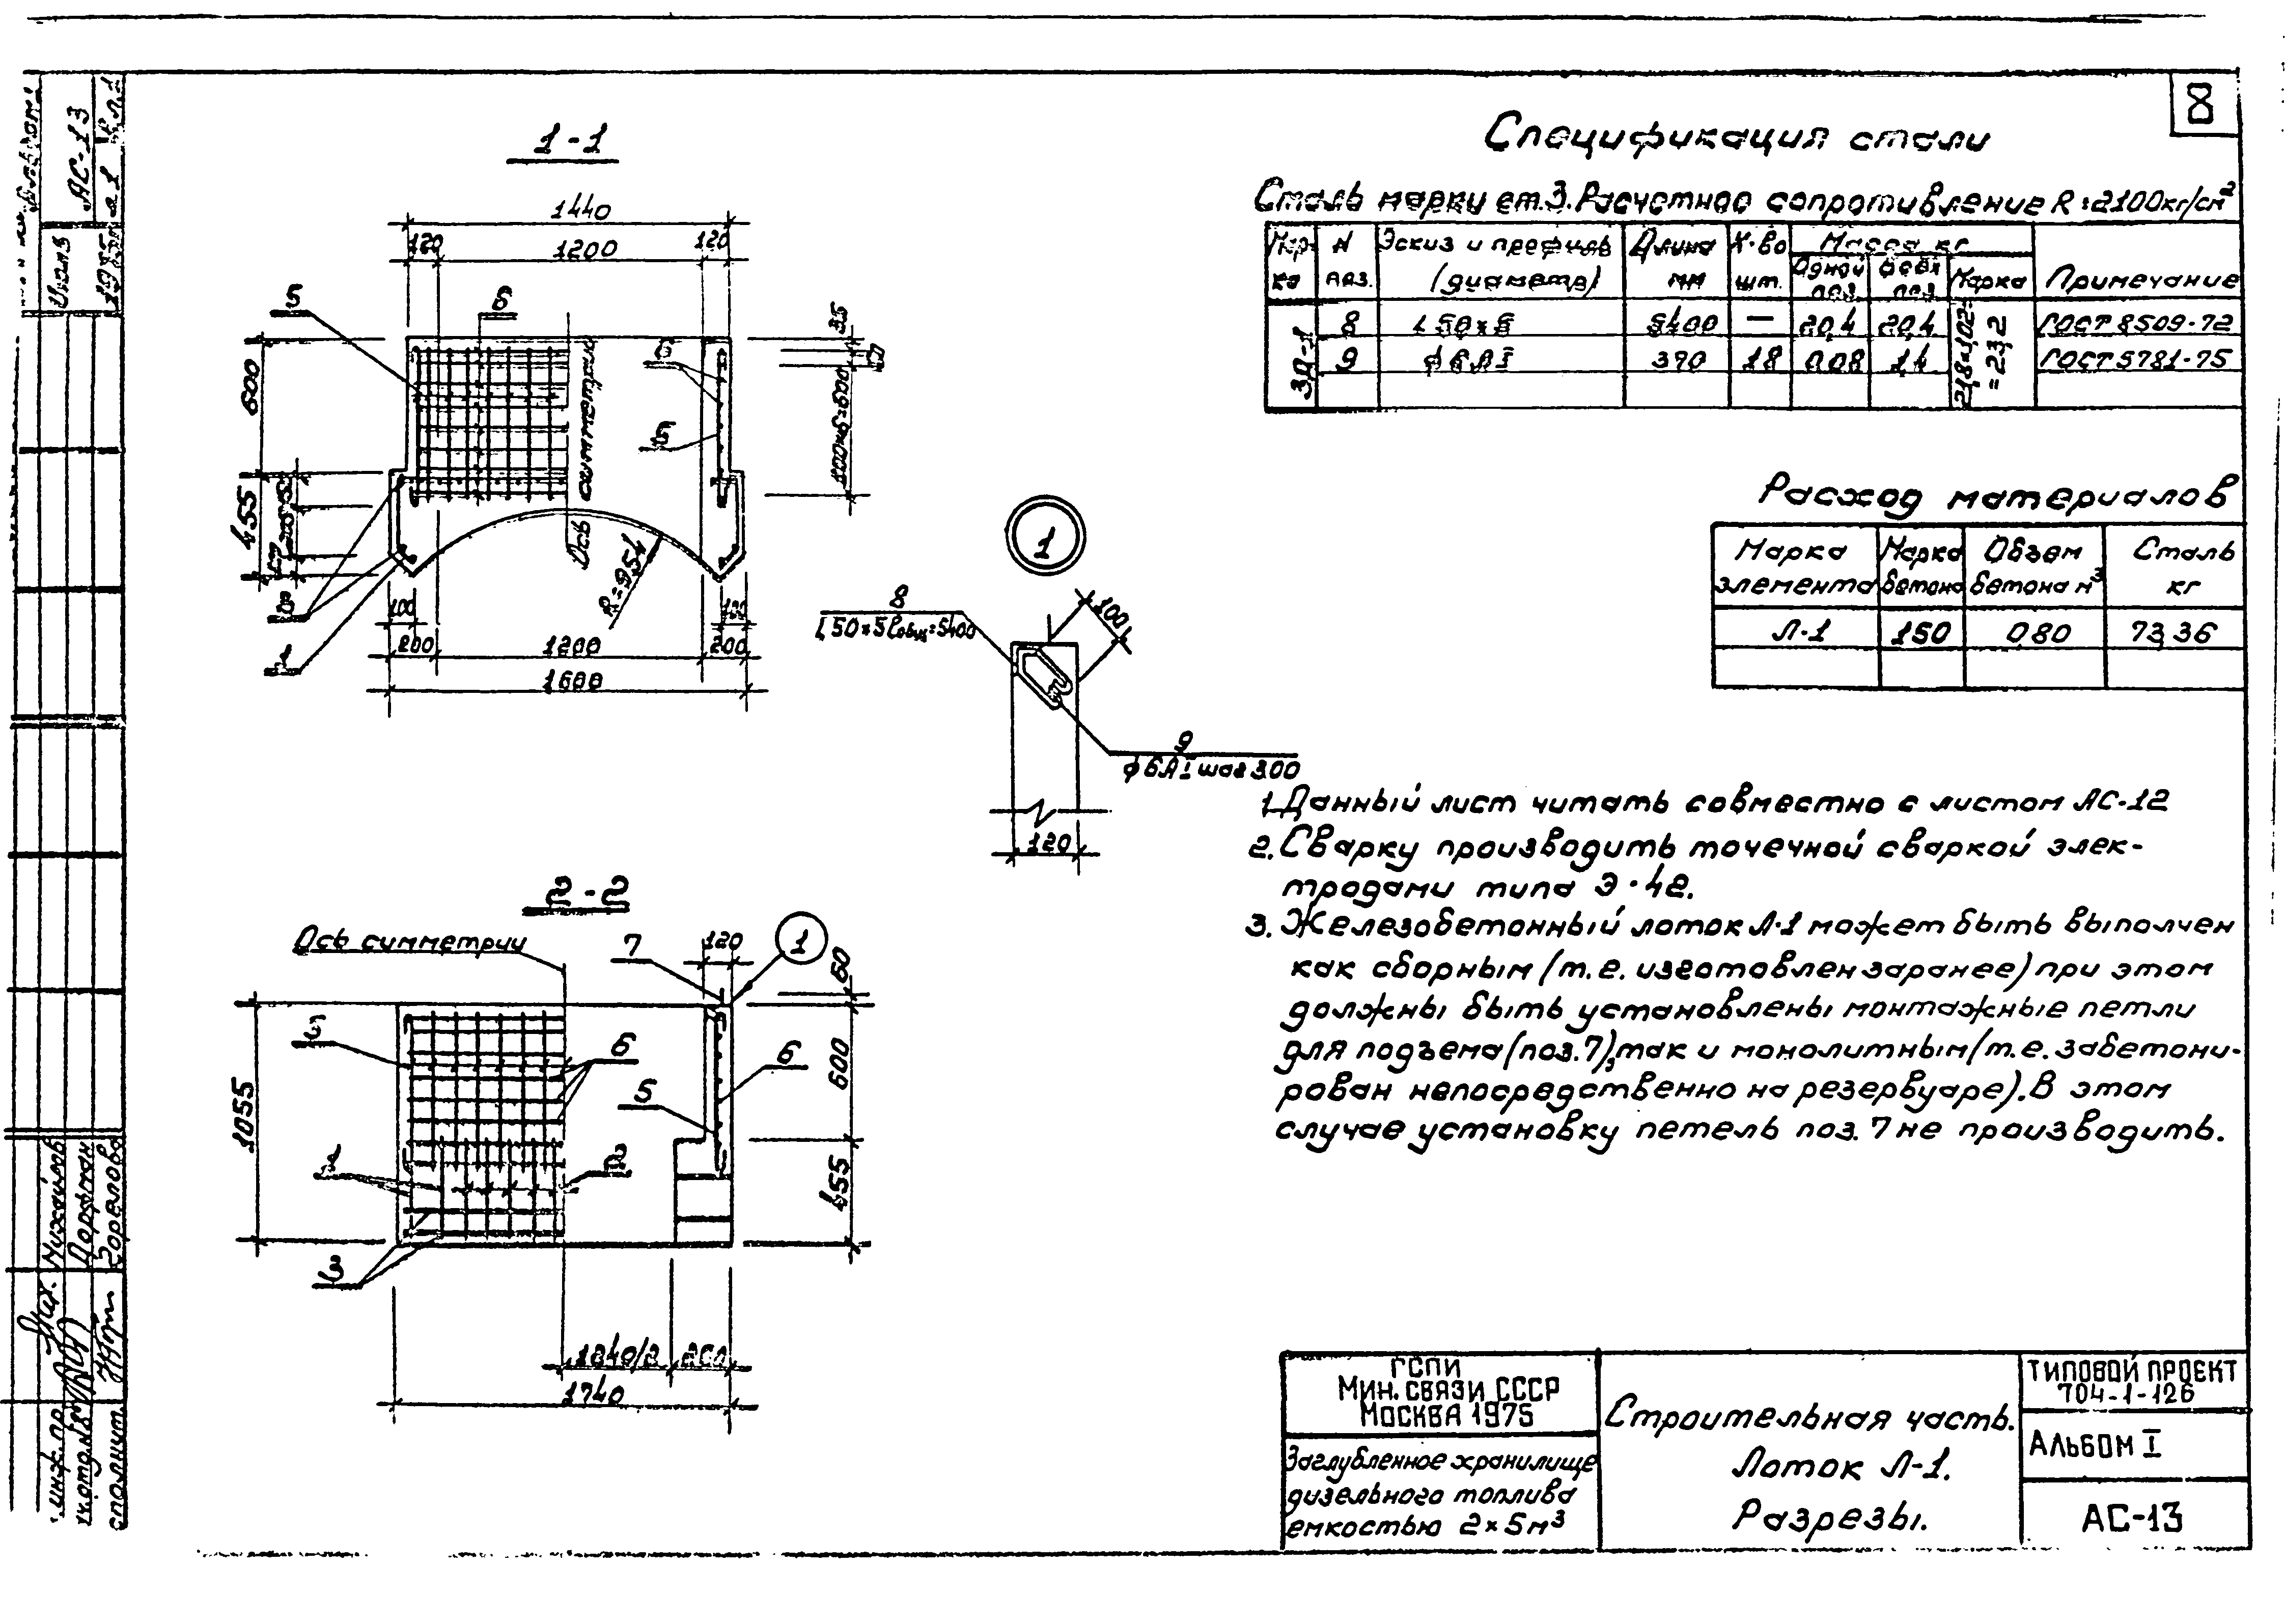 8
1-1
1440
120
1200
120
5
6
35
6
5
600
100×6=600
455
Ось симметрии
R=954
3
1
100
100
200
1200
200
1600
1
8
L 50×5 ℓобщ=5400
100
9
ф6АI шаг 300
120
2-2
Ось симметрии
7
120
1
60
5
6
6
5
1055
600
455
1
2
3
1340/2
200
1740
Спецификация стали
Сталь марки ст.3. Расчетное сопротивление R=2100кг/см²
Марка
N поз.
Эскиз и профиль (диаметр)
Длина мм
К-во шт.
Масса кг
Одной поз.
Всех поз.
Марка
Примечание
ЗД-1
8 L 50×5 5400 — 20,4 20,4 ГОСТ 8509-72
9 ф6АI 390 18 0,08 1,4 ГОСТ 5781-75
21,8×1,02=
=23,2
Расход материалов
Марка элемента
Марка бетона
Объем бетона м³
Сталь кг
Л-1 150 0,80 73,36
1. Данный лист читать совместно с листом АС-12
2. Сварку производить точечной сваркой элек-
тродами типа Э-42.
3. Железобетонный лоток Л-1 может быть выполнен
как сборным (т.е. изготовлен заранее) при этом
должны быть установлены монтажные петли
для подъема (поз.7), так и монолитным (т.е. забетони-
рован непосредственно на резервуаре). В этом
случае установку петель поз. 7 не производить.
ГСПИ
Мин. связи СССР
Москва 1975
Заглубленное хранилище
дизельного топлива
емкостью 2×5м³
Строительная часть.
Лоток Л-1.
Разрезы.
Типовой проект
704-1-126
Альбом I
АС-13
АС-13
Михайлов
Дорфман
Горелова